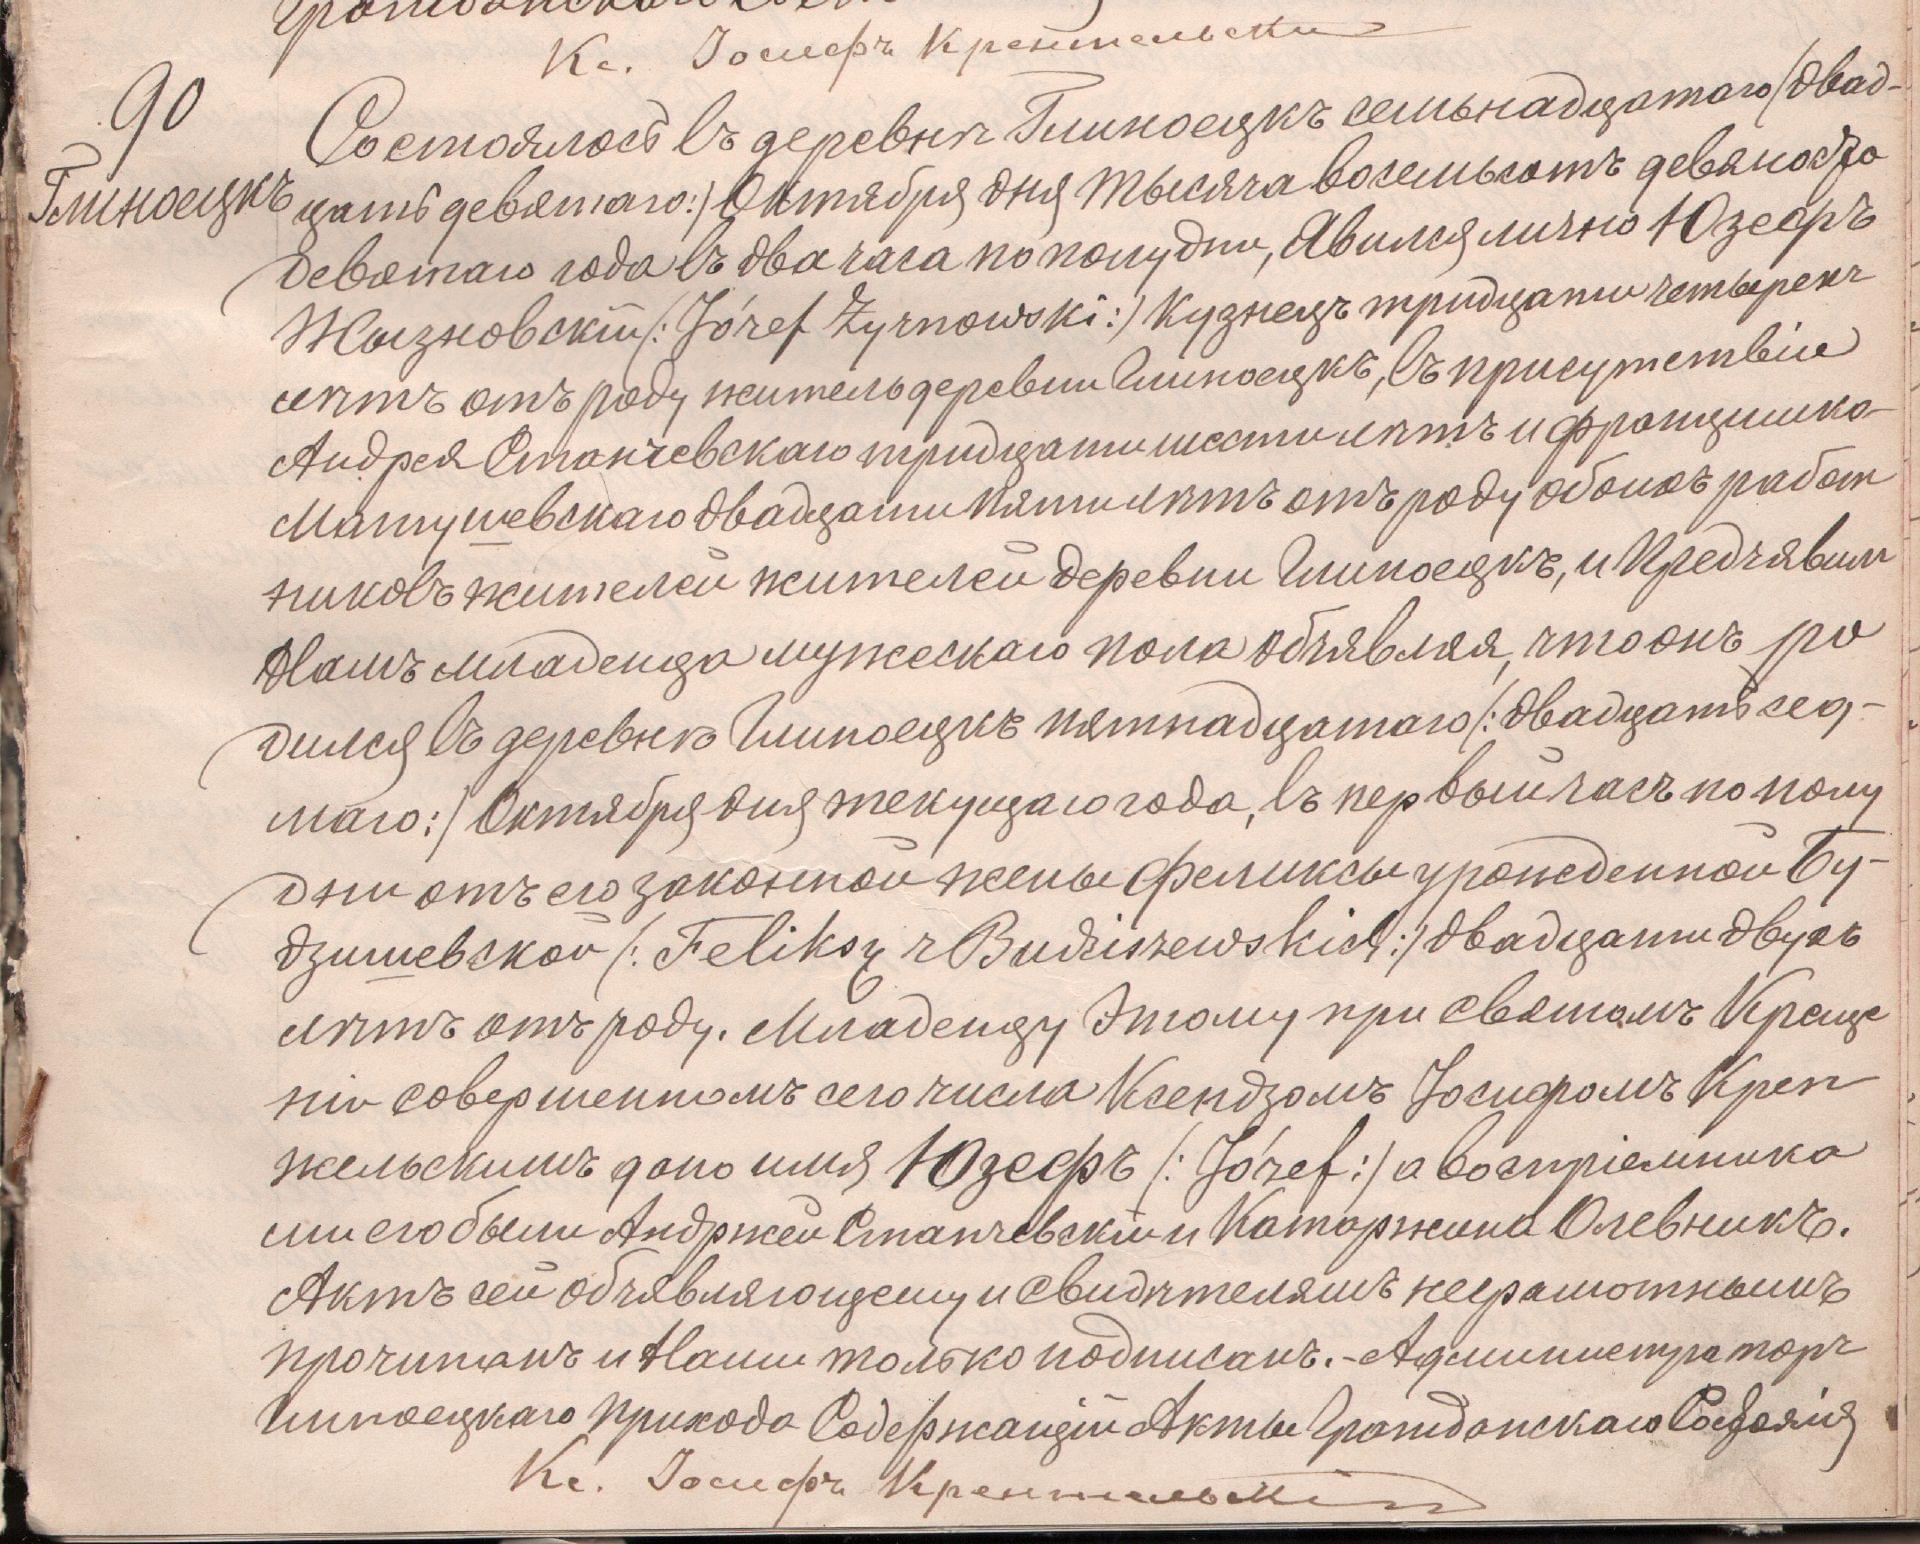 Кс. Іосифъ Кренжельскій
90
Глиноецкъ
Состоялось въ деревнѣ Глиноецкъ семьнадцатаго (двад-
цать девятаго:) Октября дня тысяча восемьсотъ девяносто
девятаго года въ два часа по полудни, Явился лично Юзефъ
Жызновскій (: Józef Żyznowski :) кузнецъ тридцати четырехъ
лѣтъ отъ роду житель деревни Глиноецкъ, въ присутствіи
Андрея Станчевскаго тридцати шести лѣтъ и Францишка
Матушевскаго двадцати пяти лѣтъ отъ роду обоихъ работ
никовъ жителей жителей деревни Глиноецкъ, и предъявилъ
Намъ младенца мужескаго пола объявляя, что онъ ро
дился въ деревнѣ Глиноецкъ пятнадцатаго (: двадцать сед-
маго :) Октября дня текущаго года, въ первый часъ по полу
дни отъ его законной жены Феликсы урожденной Бу-
дзишевской (: Feliksy z Budziszewskich :) двадцати двухъ
лѣтъ отъ роду. Младенцу Этому при Святомъ Креще
ніи совершенномъ сего числа Ксендзомъ Іосифомъ Крен
жельскимъ дано имя Юзефъ (: Józef :) а воспріемника
ми его были Анджей Станчевскій и Катаржина Олевникъ.
Актъ сей объявляющему и свидѣтелямъ неграмотнымъ
прочитанъ и Нами только подписанъ. - Администраторъ
Глиноецкаго Прихода Содержащій Акты Гражданскаго Состоянія
Кс. Іосифъ Кренжельскій